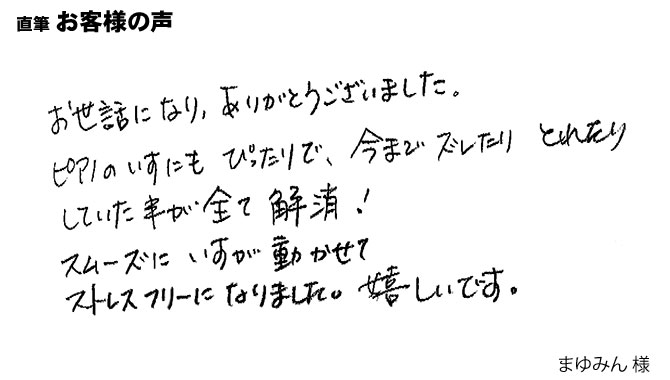 直筆 お客様の声
お世話になり、ありがとうございました。
ピアノのいすにも ぴったりで、今まで ズレたり とれたり
していた事が全て 解消！
スムーズに いすが 動かせて
ストレスフリーに なりました。嬉しいです。
まゆみん 様